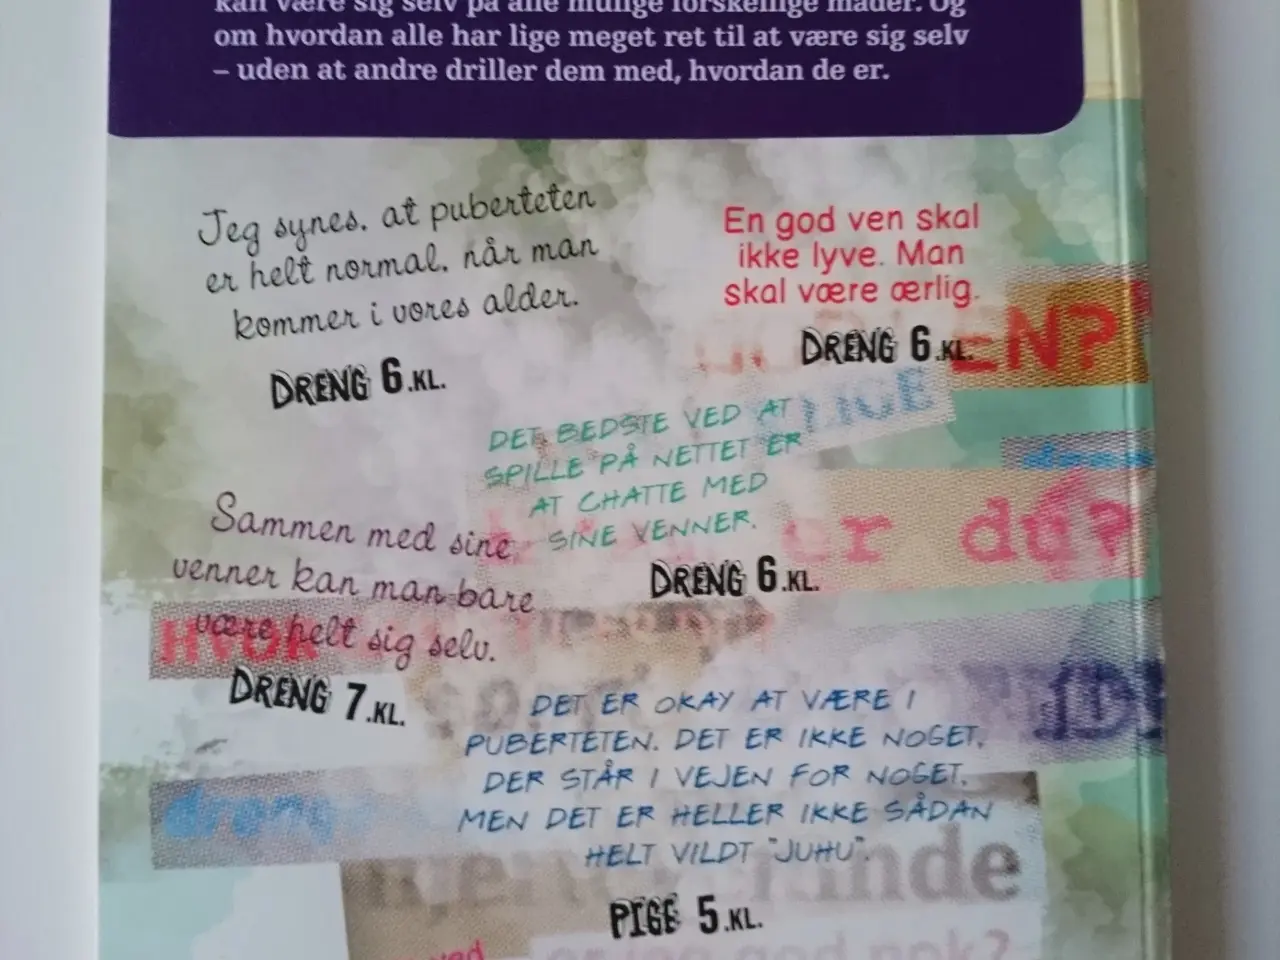 kan være sig selv på alle mulige forskellige måder. Og
om hvordan alle har lige meget ret til at være sig selv
– uden at andre driller dem med, hvordan de er.
Jeg synes, at puberteten
er helt normal, når man
kommer i vores alder.
DRENG 6.KL.
En god ven skal
ikke lyve. Man
skal være ærlig.
DRENG 6.KL.
EN?
LIGE
DET BEDSTE VED AT
SPILLE PÅ NETTET ER
AT CHATTE MED
SINE VENNER.
DRENG 6.KL.
er du?
Sammen med sine
venner kan man bare
være helt sig selv.
DRENG 7.KL.
HVOR
DET ER OKAY AT VÆRE I
PUBERTETEN. DET ER IKKE NOGET,
DER STÅR I VEJEN FOR NOGET.
MEN DET ER HELLER IKKE SÅDAN
HELT VILDT "JUHU".
PIGE 5.KL.
dreng
nde
ved
er jeg god nok?